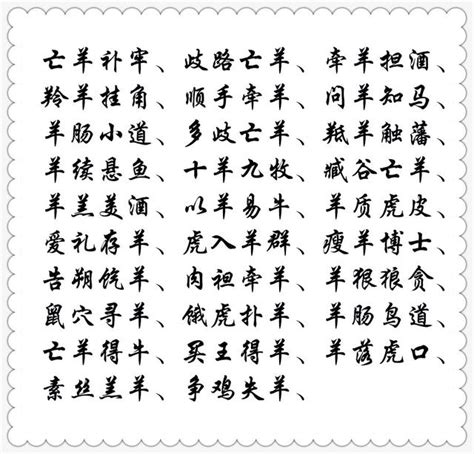 亡羊补牢、歧路亡羊、牵羊担酒、
羚羊挂角、顺手牵羊、问羊知马、
羊肠小道、多歧亡羊、羝羊触藩、
羊续悬鱼、十羊九牧、臧谷亡羊、
羊羔美酒、以羊易牛、羊质虎皮、
爱礼存羊、虎入羊群、瘦羊博士、
告朔饩羊、肉袒牵羊、羊狠狼贪、
鼠穴寻羊、饿虎扑羊、羊肠鸟道、
亡羊得牛、买王得羊、羊落虎口、
素丝羔羊、争鸡失羊、